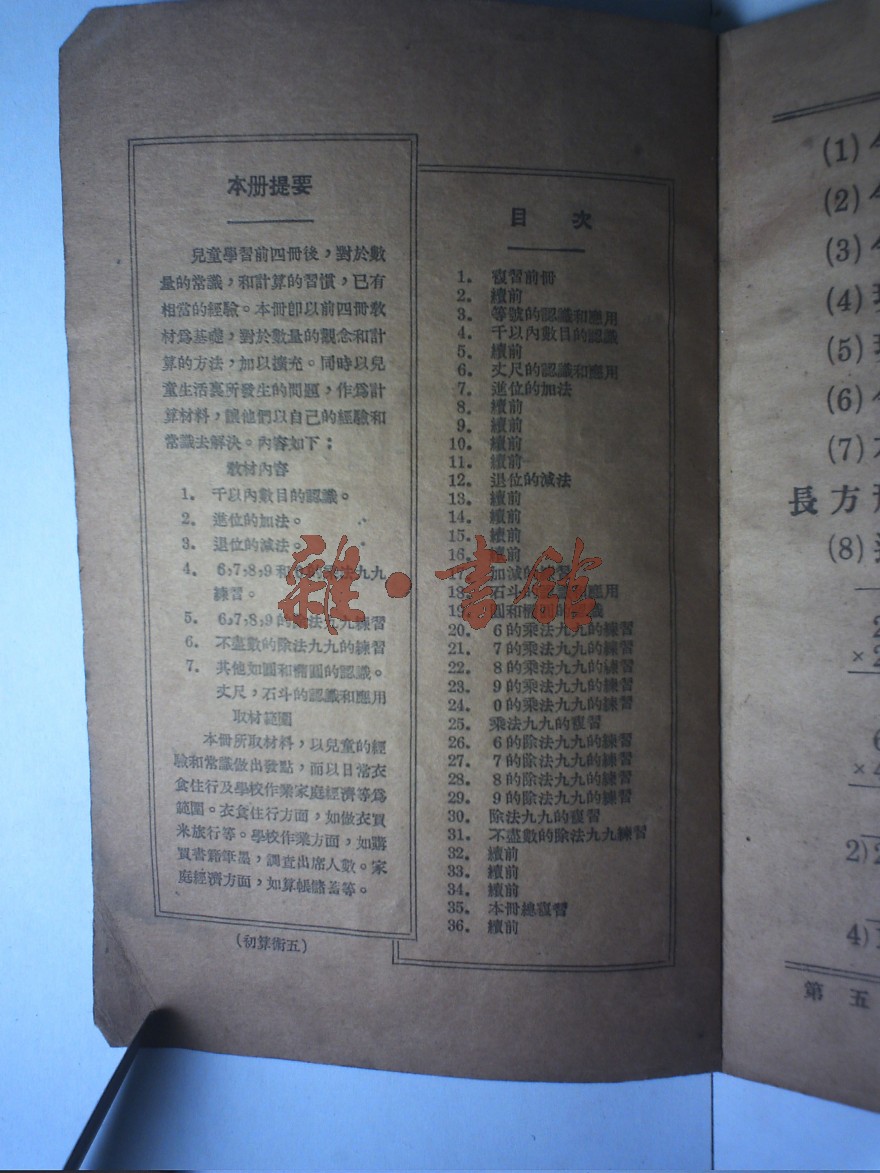 本册提要
兒童學習前四冊後，對於數
量的常識，和計算的習慣，已有
相當的經驗。本冊卽以前四冊敎
材爲基礎，對於數量的觀念和計
算的方法，加以擴充。同時以兒
童生活裏所發生的問題，作爲計
算材料，讓他們以自己的經驗和
常識去解決。內容如下：
敎材內容
1. 千以內數目的認識。
2. 進位的加法。
3. 退位的減法。
4. 6,7,8,9和0的乘法九九
練習。
5. 6,7,8,9的除法九九練習
6. 不盡數的除法九九的練習
7. 其他如圓和橢圓的認識。
丈尺，石斗的認識和應用
取材範圍
本冊所取材料，以兒童的經
驗和常識做出發點，而以日常衣
食住行及學校作業家庭經濟等爲
範圍。衣食住行方面，如做衣買
米旅行等。學校作業方面，如購
買書籍筆墨，調查出席人數。家
庭經濟方面，如算帳儲蓄等。
(初算術五)
目 次
1. 復習前冊
2. 續前
3. 等號的認識和應用
4. 千以內數目的認識
5. 續前
6. 丈尺的認識和應用
7. 進位的加法
8. 續前
9. 續前
10. 續前
11. 續前
12. 退位的減法
13. 續前
14. 續前
15. 續前
16. 續前
17. 加減的
18. 石斗的認識和應用
19. 圓和橢圓的認識
20. 6的乘法九九的練習
21. 7的乘法九九的練習
22. 8的乘法九九的練習
23. 9的乘法九九的練習
24. 0的乘法九九的練習
25. 乘法九九的復習
26. 6的除法九九的練習
27. 7的除法九九的練習
28. 8的除法九九的練習
29. 9的除法九九的練習
30. 除法九九的復習
31. 不盡數的除法九九練習
32. 續前
33. 續前
34. 續前
35. 本冊總復習
36. 續前
雜·書館
(1)
(2)
(3)
(4)
(5)
(6)
(7)
長方
(8)
×
×
2)
4)
第五